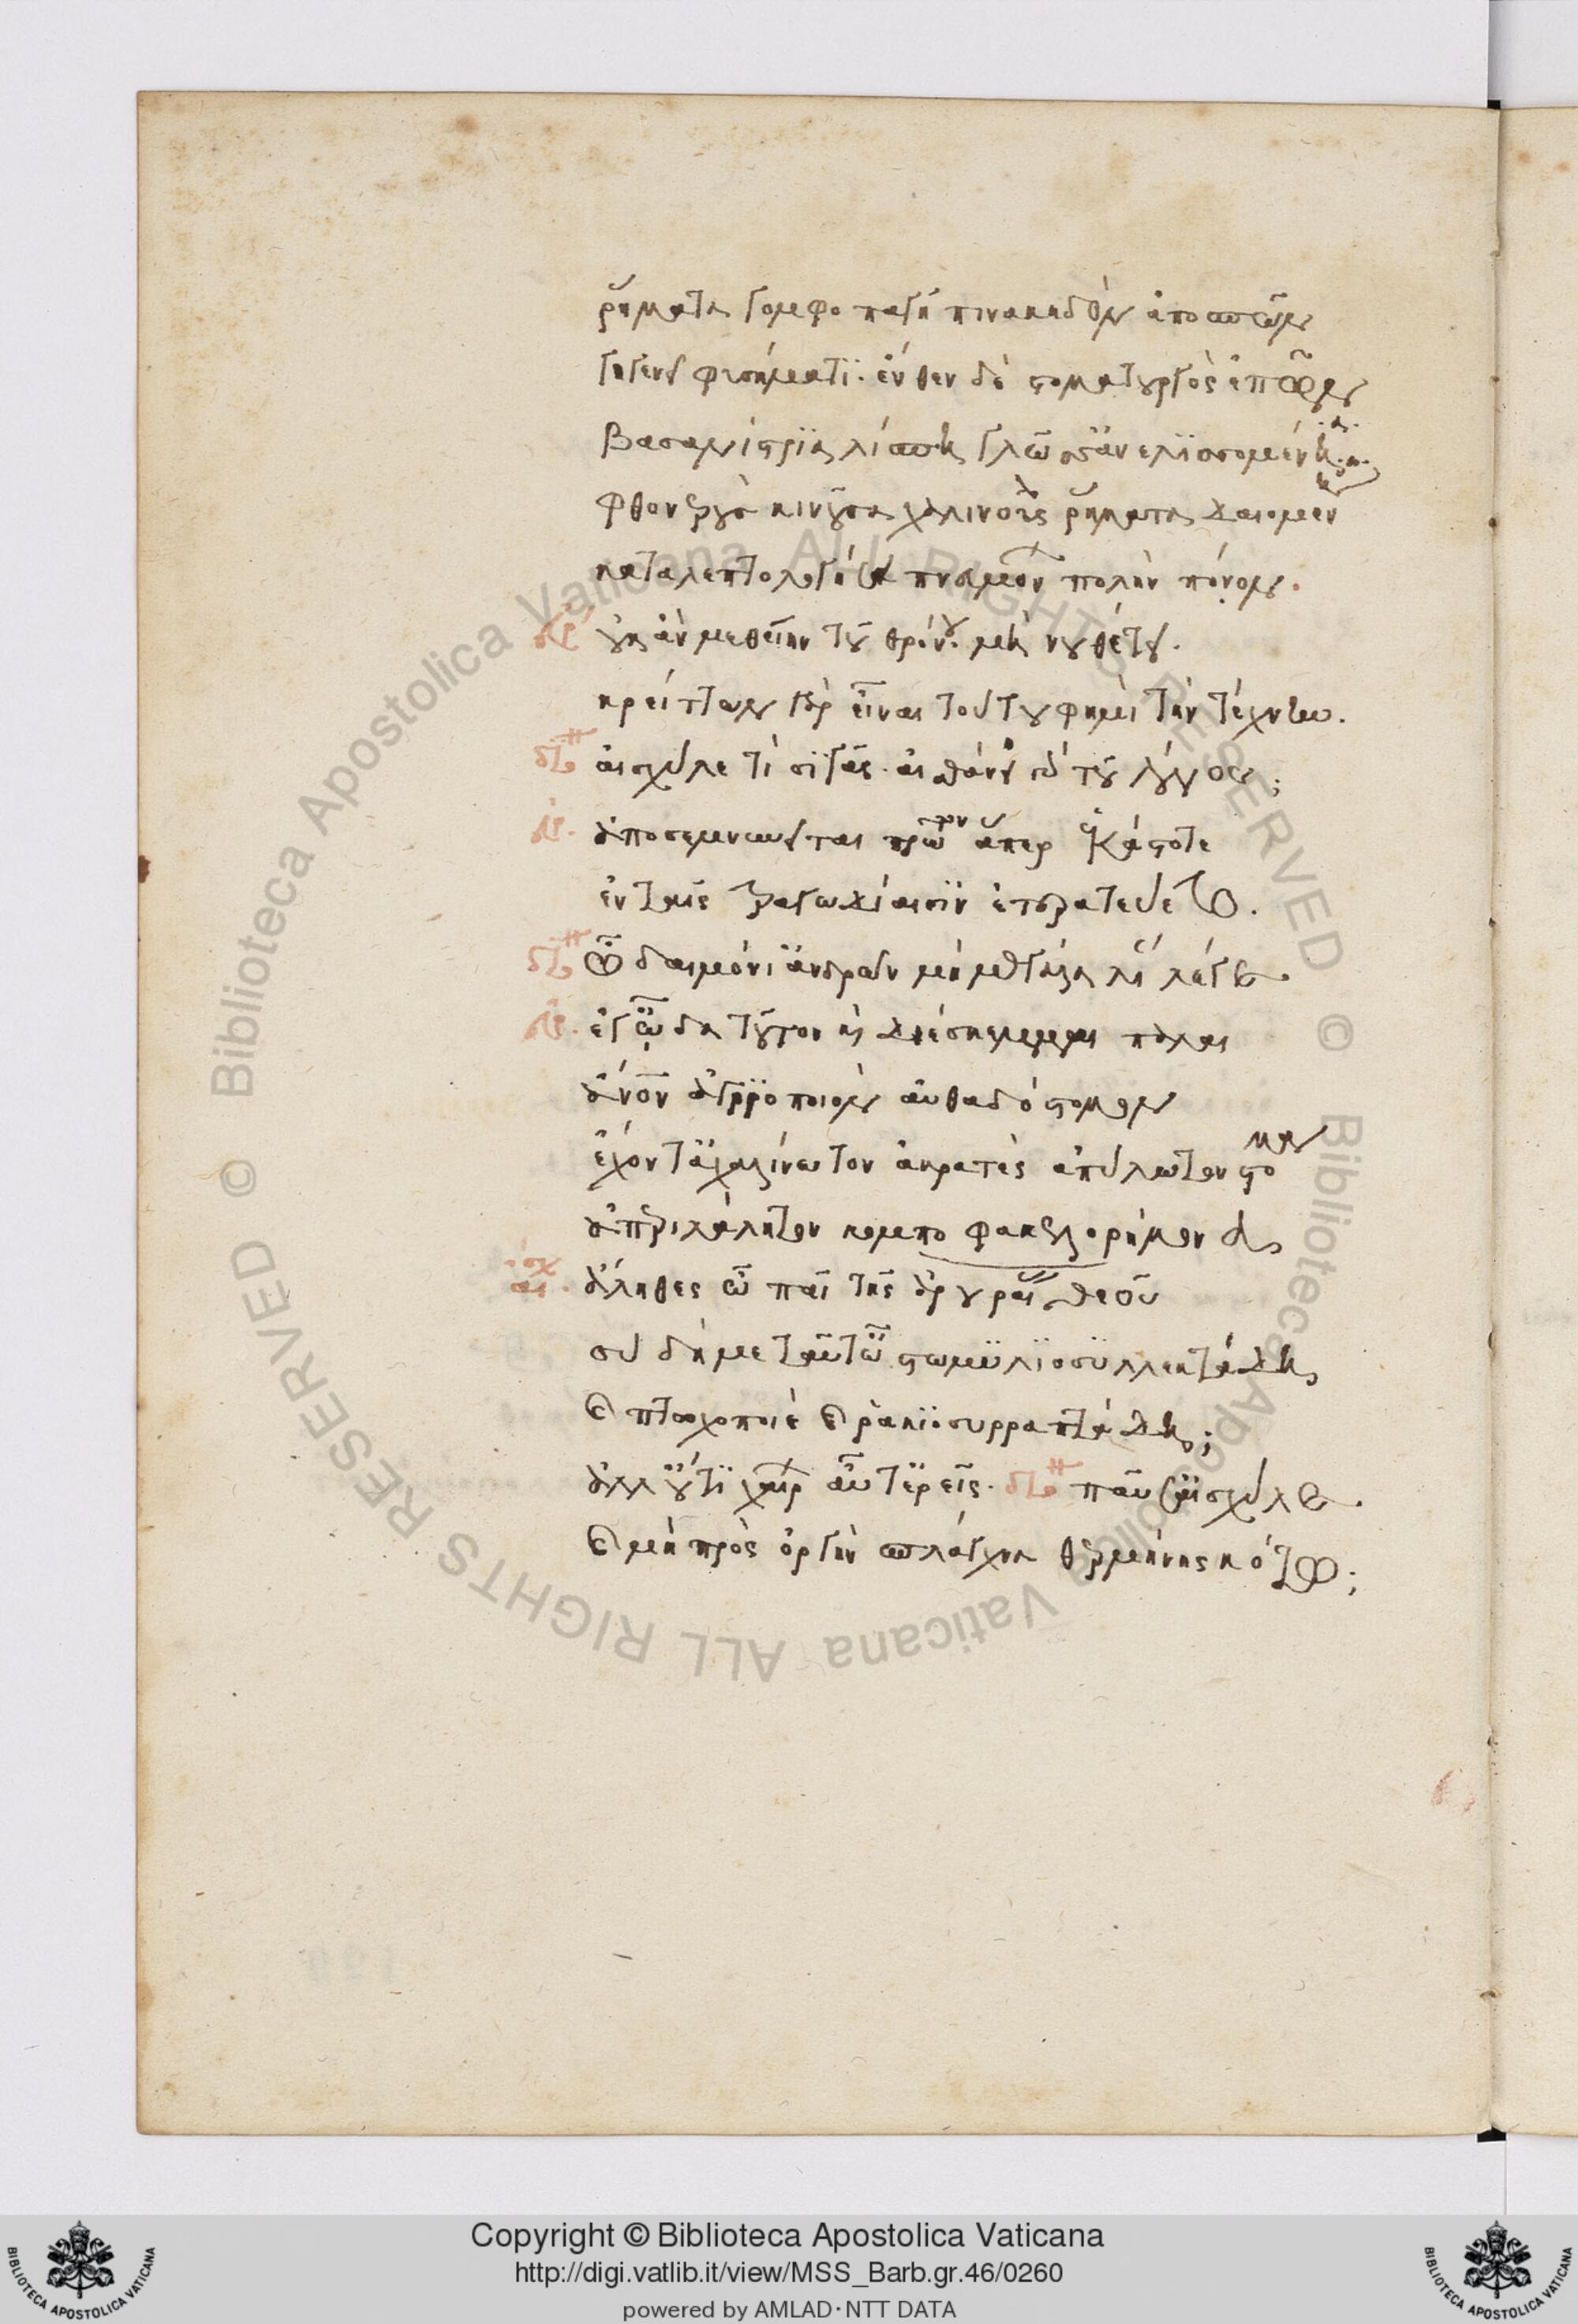 ῥήματα γομφοπαγῆ πινακηδὸν ἀποσπῶν
γηγενεῖ φυσήματι· ἔνθεν δὲ στοματουργὸς ἐπῶν
βασανίστρια λίσπη γλῶσσ' ἀνελισσομένη
φθονεροὺς κινοῦσα χαλινοὺς ῥήματα δαιομένη
καταλεπτολογήσει πνευμόνων πολὺν πόνον.
εὐρ οὐκ ἂν μεθείην τοῦ θρόνου· μὴ νουθέτει.
κρείττων γὰρ εἶναι τούτου φημὶ τὴν τέχνην.
διο αἰσχύλε τί σιγᾷς· αἰσθάνει τοῦ λόγου;
εὐρ. ἀποσεμνυνεῖται πρῶτον ἅπερ ἑκάστοτε
ἐν ταῖς τραγῳδίαισιν ἐτερατεύετο.
διο ὦ δαιμόνι' ἀνδρῶν μὴ μεγάλα λίαν λέγε
εὐρ. ἐγᾦδα τοῦτον καὶ διέσκεμμαι πάλαι
ἄνον ἀγριοποιὸν αὐθαδόστομον
ἔχοντ' ἀχαλίνωτον ἀκρατὲς ἀπύλωτον στόμα
ἀπεριλάλητον κομποφακελορήμονα
αἰσχ. ἄληθες ὦ παῖ τῆς ἀρουραίας θεοῦ
σὺ δή με ταῦτ' ὦ στωμυλιοσυλλεκτάδη
καὶ πτωχοποιὲ καὶ ῥακιοσυρραπτάδη;
ἀλλ' οὔ τι χαίρων αὔτ' ἐρεῖς· διο παῦ' αἰσχύλε
καὶ μὴ πρὸς ὀργὴν σπλάγχνα θερμήνῃς κότῳ;
Copyright © Biblioteca Apostolica Vaticana
http://digi.vatlib.it/view/MSS_Barb.gr.46/0260
powered by AMLAD·NTT DATA